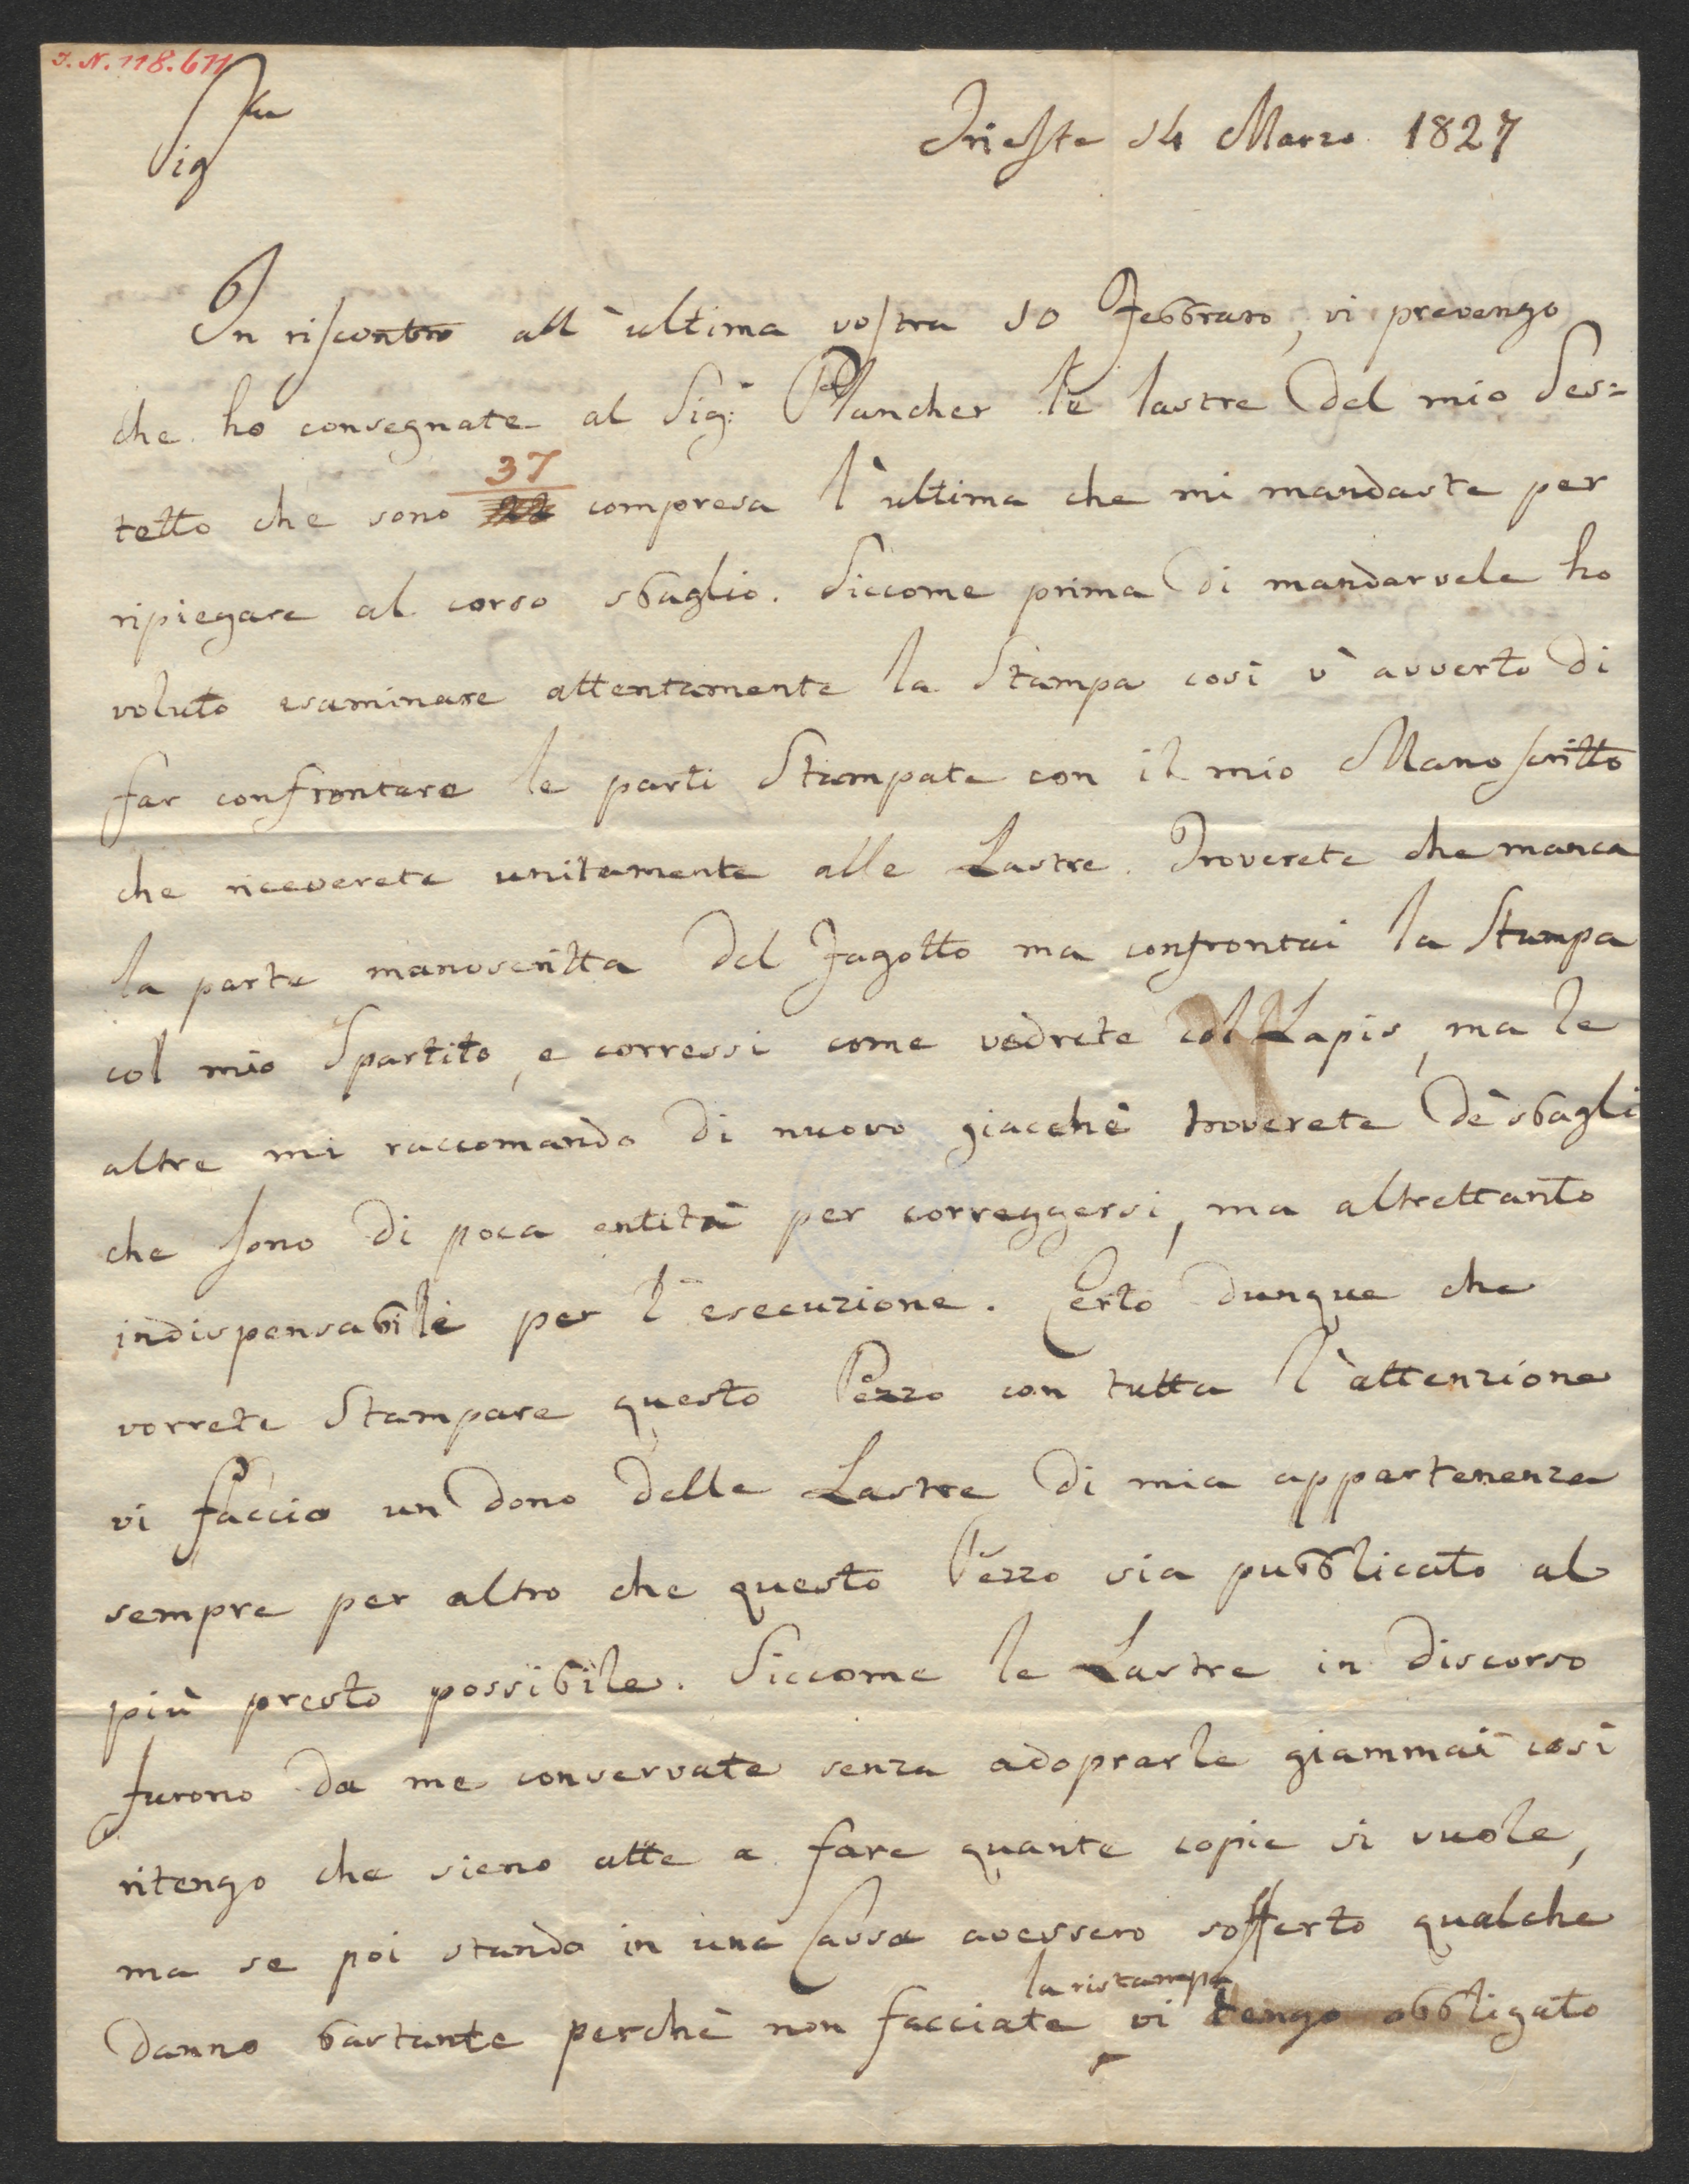 I. N. 118.671
Sig<sup>re</sup>
Trieste 14 Marzo 1827
In riscontro all' ultima vostra 10 Febbraro, vi prevengo
che ho consegnate al Sig: Plancher le lastre del mio Ses=
tetto che sono 37 compresa l'ultima che mi mandaste per
ripiegare al corso sbaglio. Siccome prima di mandarvele ho
voluto esaminare attentamente la Stampa così v' avverto di
far confrontare le parti Stampate con il mio Manoscritto
che riceverete unitamente alle Lastre. Troverete che manca
la parte manoscritta del Fagotto ma confrontai la Stampa
col mio Spartito, e corressi come vedrete col Lapis, ma le
altre mi raccomando di nuovo giacchè troverete de' sbagli
che sono di poca entità per correggersi, ma altrettanto
indispensabili per l'esecuzione. Certo dunque che
vorrete Stampare questo Pezzo con tutta l'attenzione
vi faccio un dono delle Lastre di mia appartenenza
sempre per altro che questo Pezzo sia pubblicato al
più presto possibile. Siccome le Lastre in discorso
furono da me conservate senza adoprarle giammai così
ritengo che sieno atte a fare quante copie si vuole,
ma se poi stando in una Cassa avessero sofferto qualche
danno bastante perchè non facciate la ristampa vi tengo obbligato